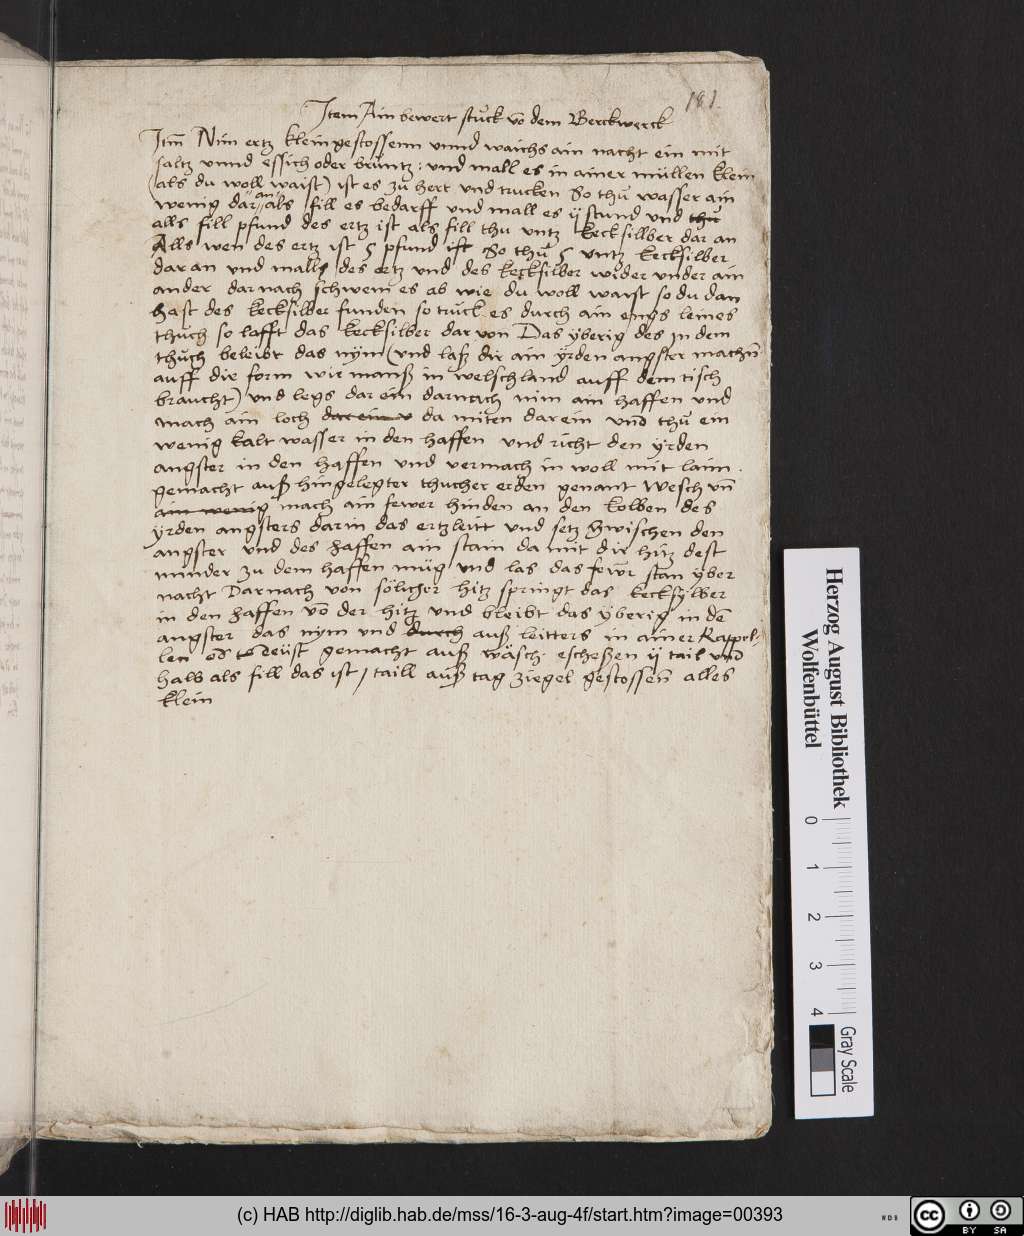 181.
Item Ain bewert stuck vō dem Berckwerck
Itm̄ Nim ertz klein gestossenn vnnd waichs ain nacht ein mit
saltz vnnd essich oder bruntz: vnd mall es in ainer müllen klein
(als du woll waist) ist es zu hert vnd trucken So thů wasser ain
wenig dar an als fill es bedarff vnd mall es ij stund vnd thů
alls fill pfund des ertz ist als fill thu vntz kecksillber dar an
Alls wen des ertz ist 5 pfund ist So thů 5 vntz kecksilber
dar an vnd malls des ertz vnd des kecksilber wider vnder ain
ander dar nach schwem es ab wie du woll waist so du dan
hast des kecksilber funden so truck es durch ain engs leines
thuch so lafft das kecksilber dar von Das yberig des jn dem
thuch beleibt das nÿm (vnd laß dir ain ÿrden angster machn̄
auff die form wie mans in welschland auff dem tisch
braucht) vnd legs dar ein darnach nim ain haffen vnd
mach ain loch dar ein v da miten darein vnd thů ein
wenig kalt wasser in den haffen vnd richt den ÿrden
angster in den haffen vnd vermach in woll mit laim
gemacht auß hingelegter thucher erden genant wesch vn̄
ain wenig mach ain fewer hinden an den kolben des
ÿrden angsters darin das ertz leitt vnd setz zwischen den
angster vnd des haffen ain stain da mit die hitz dest
minder zu dem haffen müg vnd las das fewr stan yber
nacht Darnach von sölicher hitz springt das kecksylber
in den haffen vō der hitz vnd bleibt das ÿberig in dē
angster das nym vnd durch auß leitters in ainer Kappel-
len gemacht auß wäsch escheßen ij tail vnd
halb als fill das ist j taill auß tag ziegel gestossenn alles
klein
Herzog August Bibliothek
Wolfenbüttel
0 1 2 3 4
Gray Scale
(c) HAB http://diglib.hab.de/mss/16-3-aug-4f/start.htm?image=00393
WDB
cc BY SA